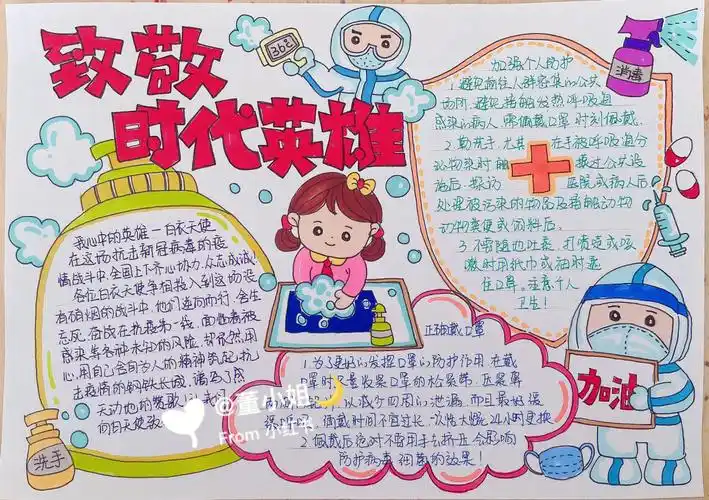 致敬
时代英雄
36℃
消毒
加强个人防护
1.避免前往人群密集的公共
场所,避免接触发热呼吸道
感染的病人 需佩戴口罩时刻佩戴.
2.勤洗手.尤其 在手被呼吸道分
泌物染时 触 摸过公共设
施后.探访 医院或病人后
处理被污染的物品及接触动物
动物粪便或饲料后.
3.不要随地吐痰.打喷嚏或咳
嗽时用纸巾或袖肘遮
住口鼻,注意个人
卫生!
我心中的英雄一白衣天使
在这场抗击新冠病毒的疫
情战斗中.全国上下齐心协力,众志成城
各位白衣天使争相投入到这场没
有硝烟的战斗中,他们逆向而行,舍生
忘死.奋战在抗疫第一线,面临着被
感染等各种未知的风险,却依然用
心,用自己舍己为人的精神筑起抗
击疫情的钢铁长城,谱写了感
天动地的赞歌
向白衣天使致
正确戴口罩
1.为了更好的发挥口罩的防护作用.在戴
口罩时 注意收紧口罩的
以减少四周的泄漏.而且最好
佩戴时间不宜过长.一次性大概24小时更换
2.佩戴后绝对不要用手 否 会影响
防护病毒 细菌的效果!
加油
洗手
@董小姐🌙
From 小红书